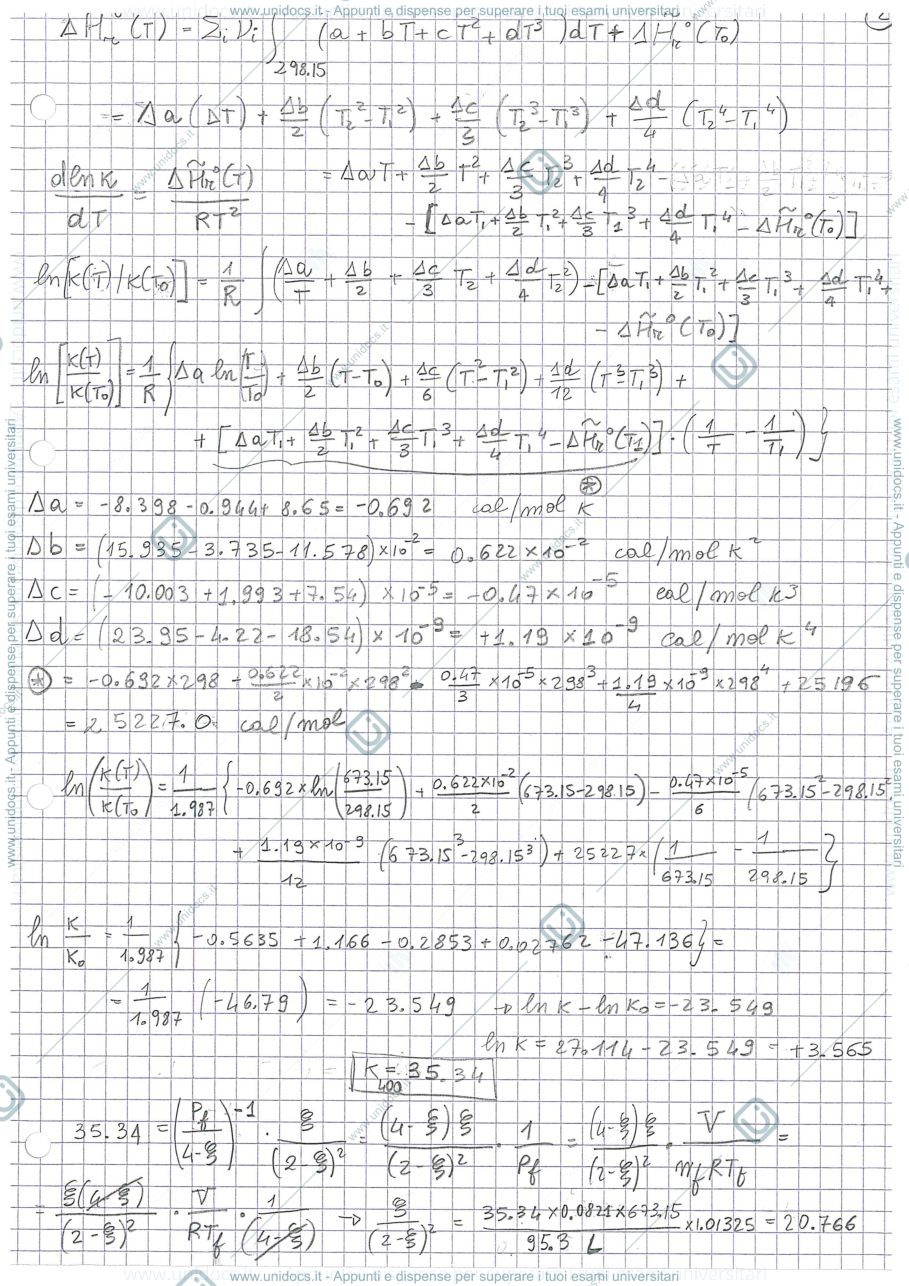 www.unidocs.it - Appunti e dispense per superare i tuoi esami universitari
ΔH̃r°(T) = Σi νi ∫298.15 (a + bT + cT² + dT³) dT + ΔH̃r°(T₀)
= Δa (ΔT) + Δb/2 (T₂² - T₁²) + Δc/3 (T₂³ - T₁³) + Δd/4 (T₂⁴ - T₁⁴)
dlnK/dT = ΔH̃r°(T)/RT² = ΔaT + Δb/2 T² + Δc/3 T₂³ + Δd/4 T₂⁴ -
- [ΔaT₁ + Δb/2 T₁² + Δc/3 T₁³ + Δd/4 T₁⁴ - ΔH̃r°(T₀)]
ln[K(T)/K(T₀)] = 1/R ∫(Δa/T + Δb/2 + Δc/3 T₂ + Δd/4 T₂²) - [ΔaT₁ + Δb/2 T₁² + Δc/3 T₁³ + Δd/4 T₁⁴ +
- ΔH̃r°(T₀)]
ln[K(T)/K(T₀)] = 1/R {Δa ln(T/T₀) + Δb/2 (T - T₀) + Δc/6 (T² - T₁²) + Δd/12 (T³ - T₁³) +
+ [ΔaT₁ + Δb/2 T₁² + Δc/3 T₁³ + Δd/4 T₁⁴ - ΔH̃r°(T1)] · (1/T - 1/T₁)}
⊛
Δa = -8.398 - 0.944 + 8.65 = -0.692 cal/mol K
Δb = (15.935 - 3.735 - 11.578) × 10⁻² = 0.622 × 10⁻² cal/mol K²
Δc = (-10.003 + 1.993 + 7.54) × 10⁻⁵ = -0.47 × 10⁻⁵ cal/mol K3
Δd = (23.95 - 4.22 - 18.54) × 10⁻⁹ = +1.19 × 10⁻⁹ cal/mol K⁴
⊛ = -0.692 × 298 + 0.622/2 × 10⁻² × 298² - 0.47/3 × 10⁻⁵ × 298³ + 1.19/4 × 10⁻⁹ × 298⁴ + 25196
= 25227.0 cal/mol
ln(K(T)/K(T₀)) = 1/1.987 {-0.692 × ln(673.15/298.15) + 0.622×10⁻²/2 (673.15 - 298.15) - 0.47×10⁻⁵/6 (673.15² - 298.15²)
+ 1.19×10⁻⁹/12 (673.15³ - 298.15³) + 25227 × (1/673.15 - 1/298.15)}
ln K/K₀ = 1/1.987 {-0.5635 + 1.166 - 0.2853 + 0.02762 - 47.136} =
= 1/1.987 (-46.79) = -23.549 → ln K - ln K₀ = -23.549
ln K = 27.114 - 23.549 = +3.565
K400 = 35.34
35.34 = (Pf/(4-ξ))⁻¹ · ξ/(2-ξ)² = (4-ξ)ξ/(2-ξ)² · 1/Pf = (4-ξ)ξ/(2-ξ)² · V/nfRTf =
= ξ(4-ξ)/(2-ξ)² · V/RTf · 1/(4-ξ) → ξ/(2-ξ)² = 35.34 × 0.0821 × 673.15/95.3 L × 1.01325 = 20.766
www.unidocs.it - Appunti e dispense per superare i tuoi esami universitari